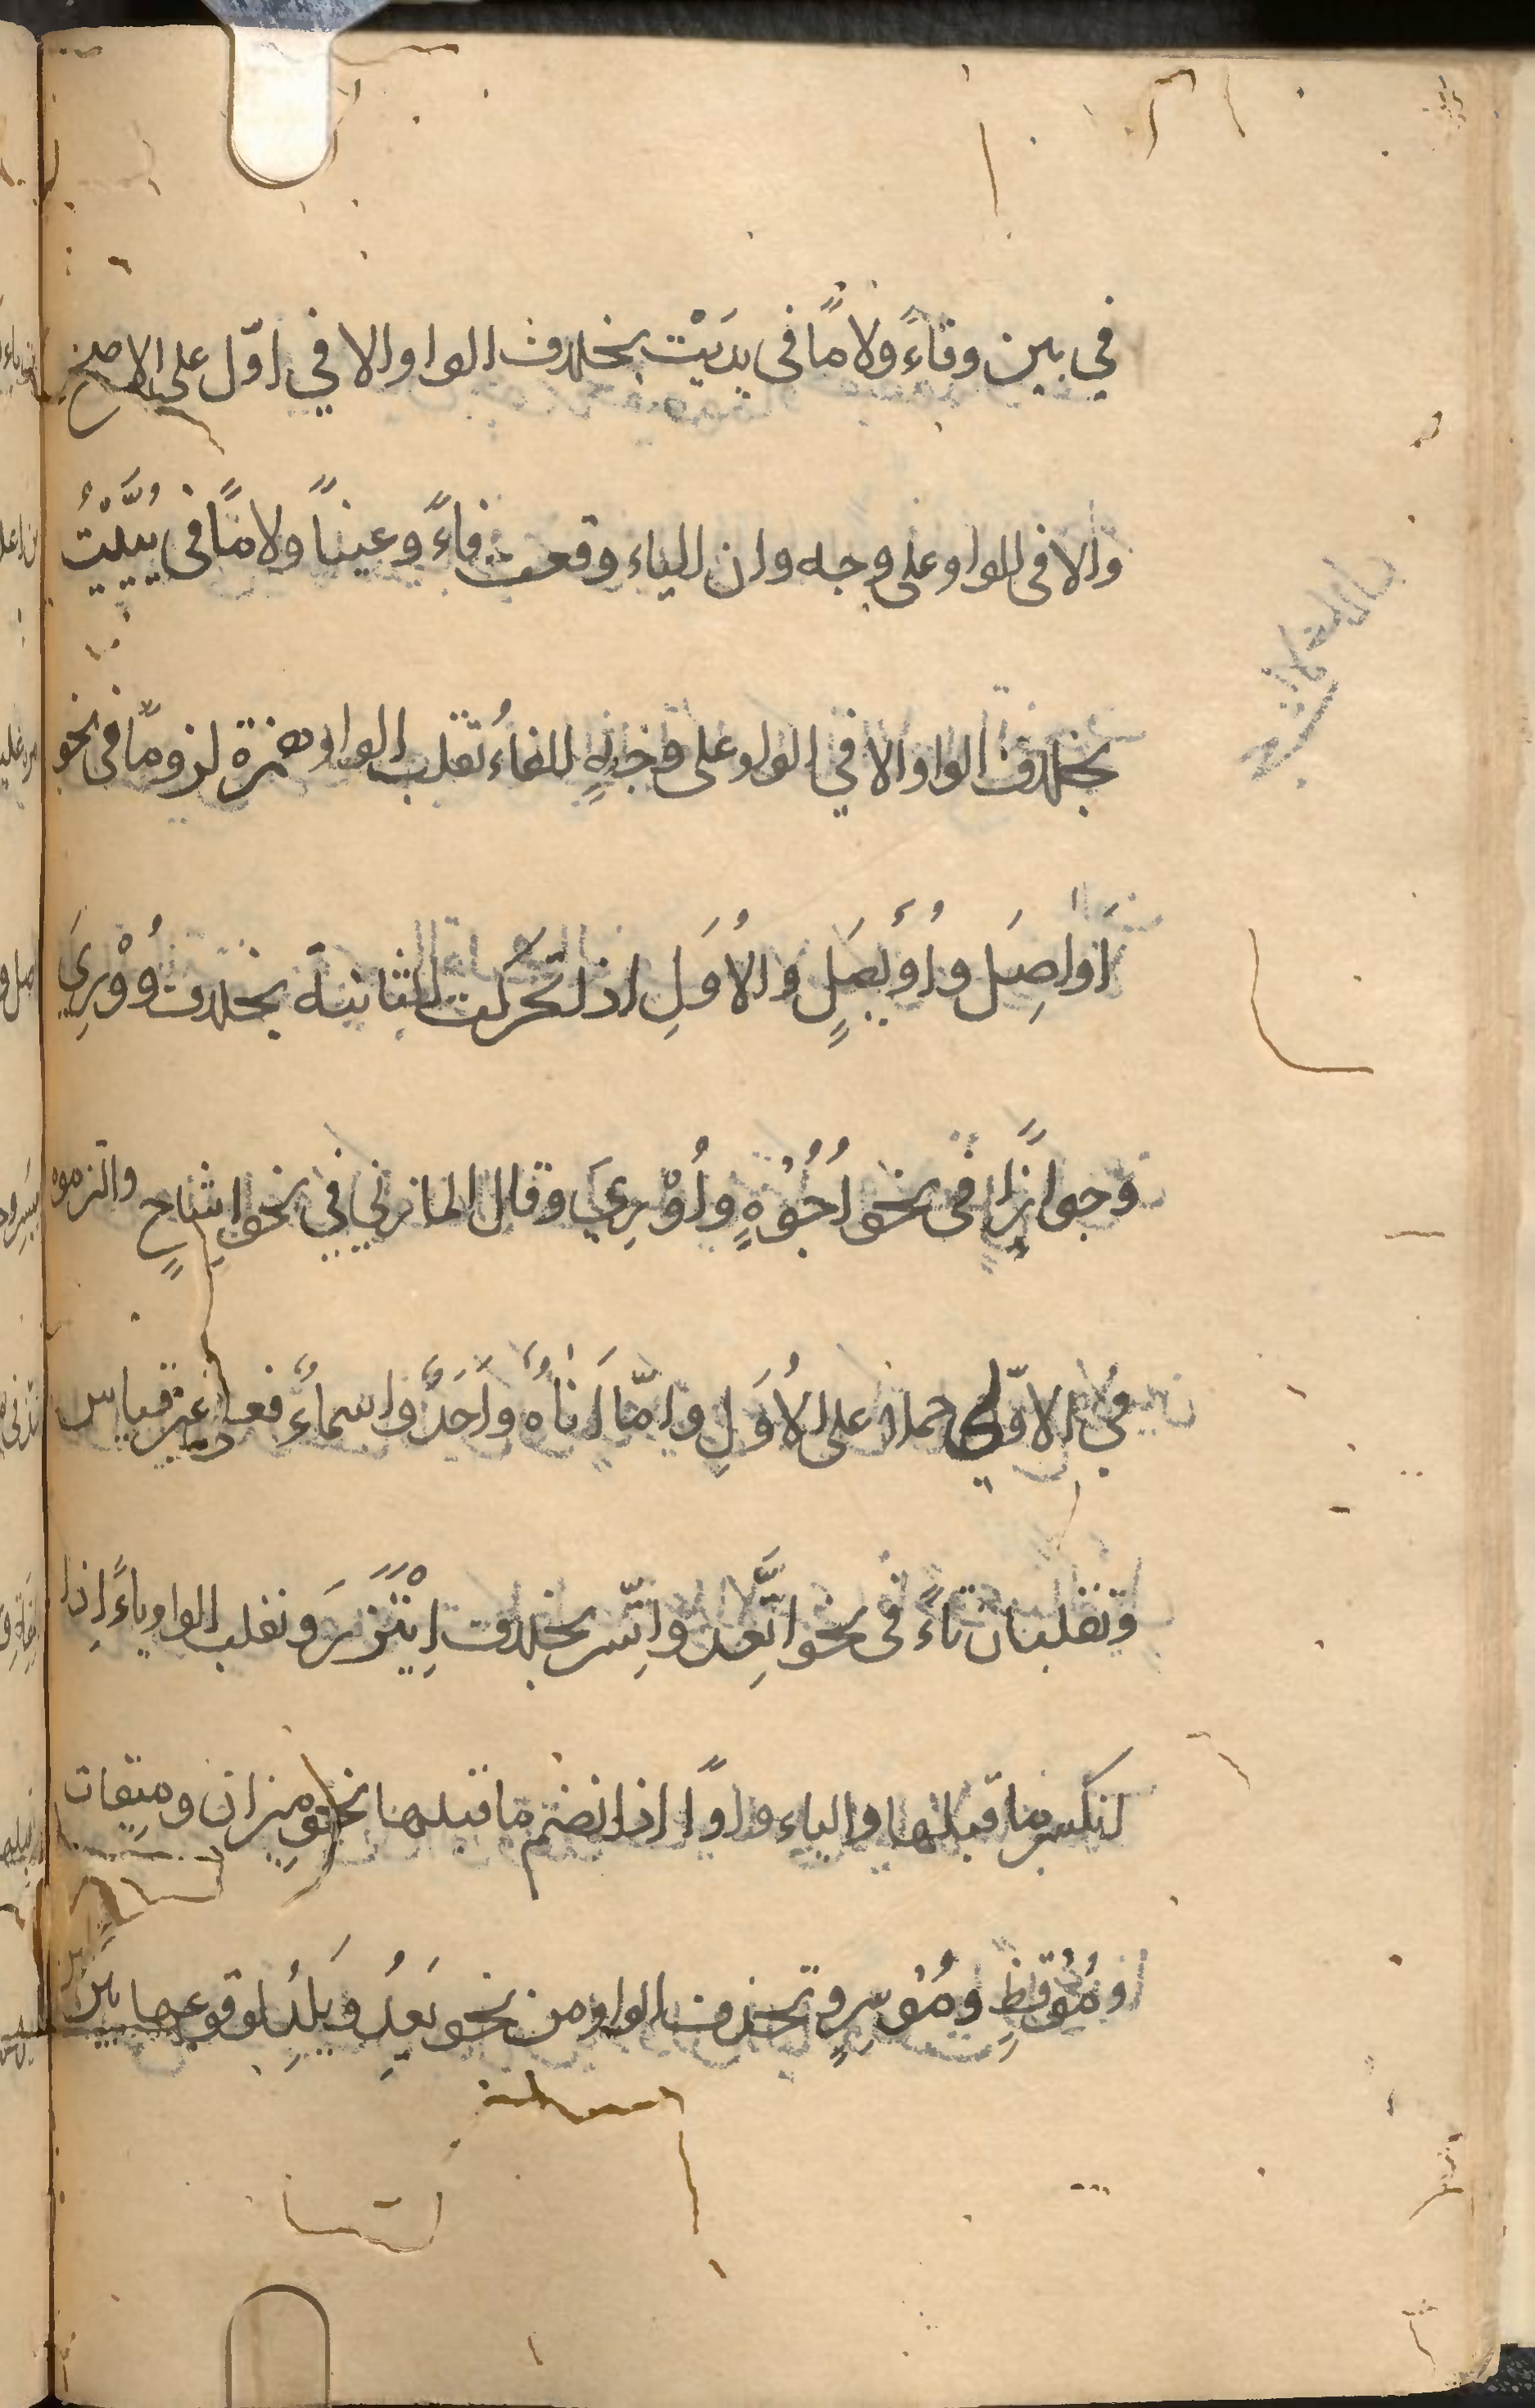 في بين وفاءً ولامًا فى يديت بخلاف الواو الا في اوّل على الاصح
والا فى الواو على وجه وان الياء وقعت فاءً وعينًا ولامًا فى يُيّيْتُ
بخلاف الواو الا في الواو على وجهٍ الفاءُ تقلب الواو همزة لزومًا فى نحو
اَواصِلَ واُوَيْصِلٍ والاُوَلِ اذا تحركت الثانية بخلاف وُوْرِيَ
وجوازًا فى نحو اُجُوْهٍ واُوْرِيَ وقال المازني في نحو اِشاحٍ والتزموه
في الاوّلي حملا على الاُوَلِ وامّا اَناةٌ واَحَدٌ واسماءُ فعلى غير قياس
وتقلبان تاءً فى نحو اتَّعِد واتّسر بخلاف اِيْتَزَرَ وتقلب الواو ياءً اِذا
انكسر ما قبلها والياء واوًا اذا انضم ما قبلها نحو مِيزان ومِيقات
ومُوْقظٍ ومُوْسِرٍ وتحذف الواو من نحو يَعِدُ ويَلِدُ لوقوعها بين